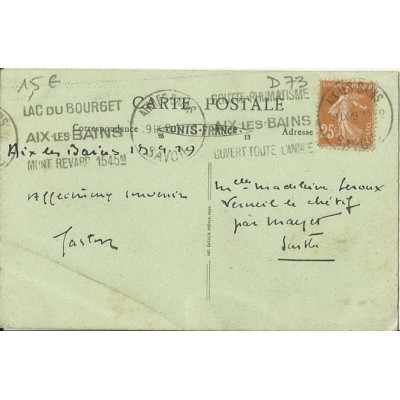 15 €
D73
CARTE POSTALE
LAC DU BOURGET
AIX-LES-BAINS
MONT REVARD 1545M
GOUTTE-RHUMATISME
AIX-LES-BAINS
OUVERT TOUTE L'ANNÉE
AIX-LES-BAINS
SAVOIE
AIX-LES-BAINS
25c
Correspondance
TUNIS-FRANCE
Adresse
Aix les Bains 18.9.29
Affectueux souvenir
Gaston
Mlle Madeleine Leroux
Verneil le chétif
par Mayet
Sarthe